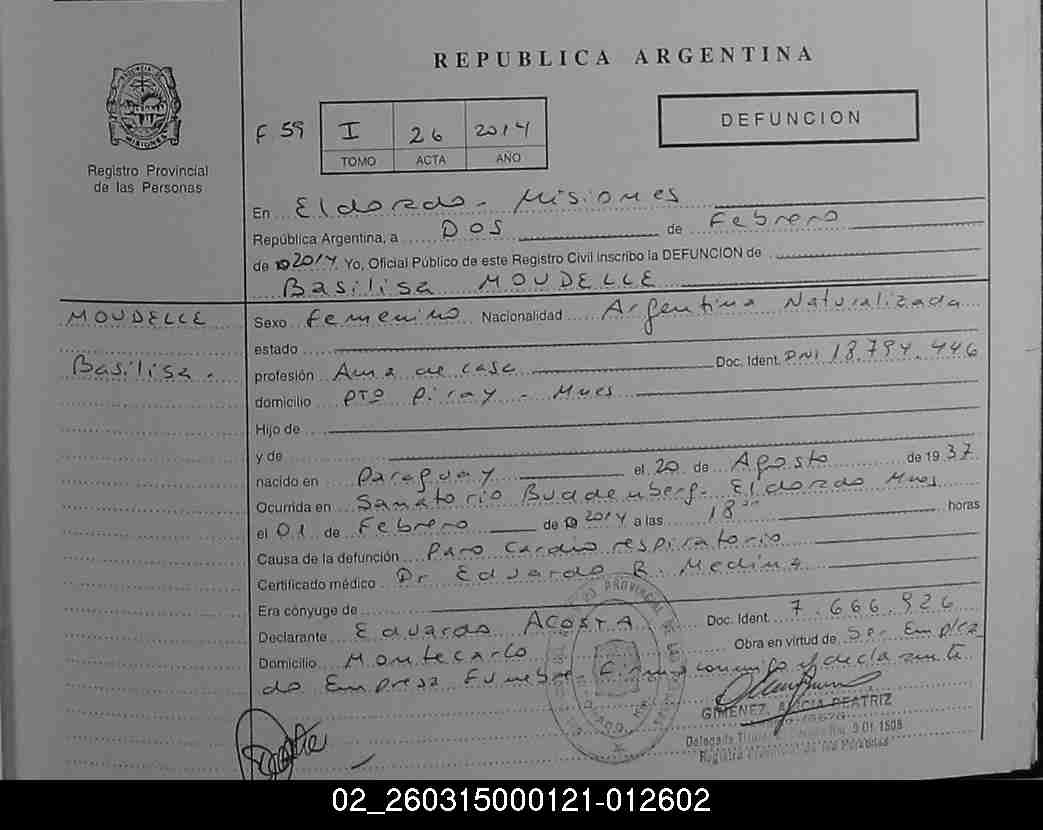 REPUBLICA ARGENTINA
PROVINCIA DE MISIONES
Registro Provincial
de las Personas
F 59
I 26 2014
TOMO ACTA AÑO
DEFUNCION
En Eldorado - Misiones
República Argentina, a DOS de Febrero
de 2014 Yo, Oficial Público de este Registro Civil inscribo la DEFUNCION de
Basilisa MOUDELLE
MOUDELLE
Basilisa.
Sexo Femenino Nacionalidad Argentina Naturalizada
estado
profesión Ama de casa Doc. Ident. DNI 18.794.446
domicilio Pto Piray - Mnes
Hijo de
y de
nacido en Paraguay el 20 de Agosto de 1937
Ocurrida en Sanatorio Buddenberg - Eldorado Mnes
el 01 de Febrero de 2014 a las 18 horas
Causa de la defunción Paro Cardio respiratorio
Certificado médico Dr Eduardo R. Medina
Era cónyuge de
Declarante Eduardo ACOSTA Doc. Ident. 7.666.926
Domicilio Montecarlo Obra en virtud de Ser Emplea
do Empresa Funebre. Firma conmigo el declarante
GIMENEZ, ALICIA BEATRIZ
Registro Provincial de las Personas
02_260315000121-012602